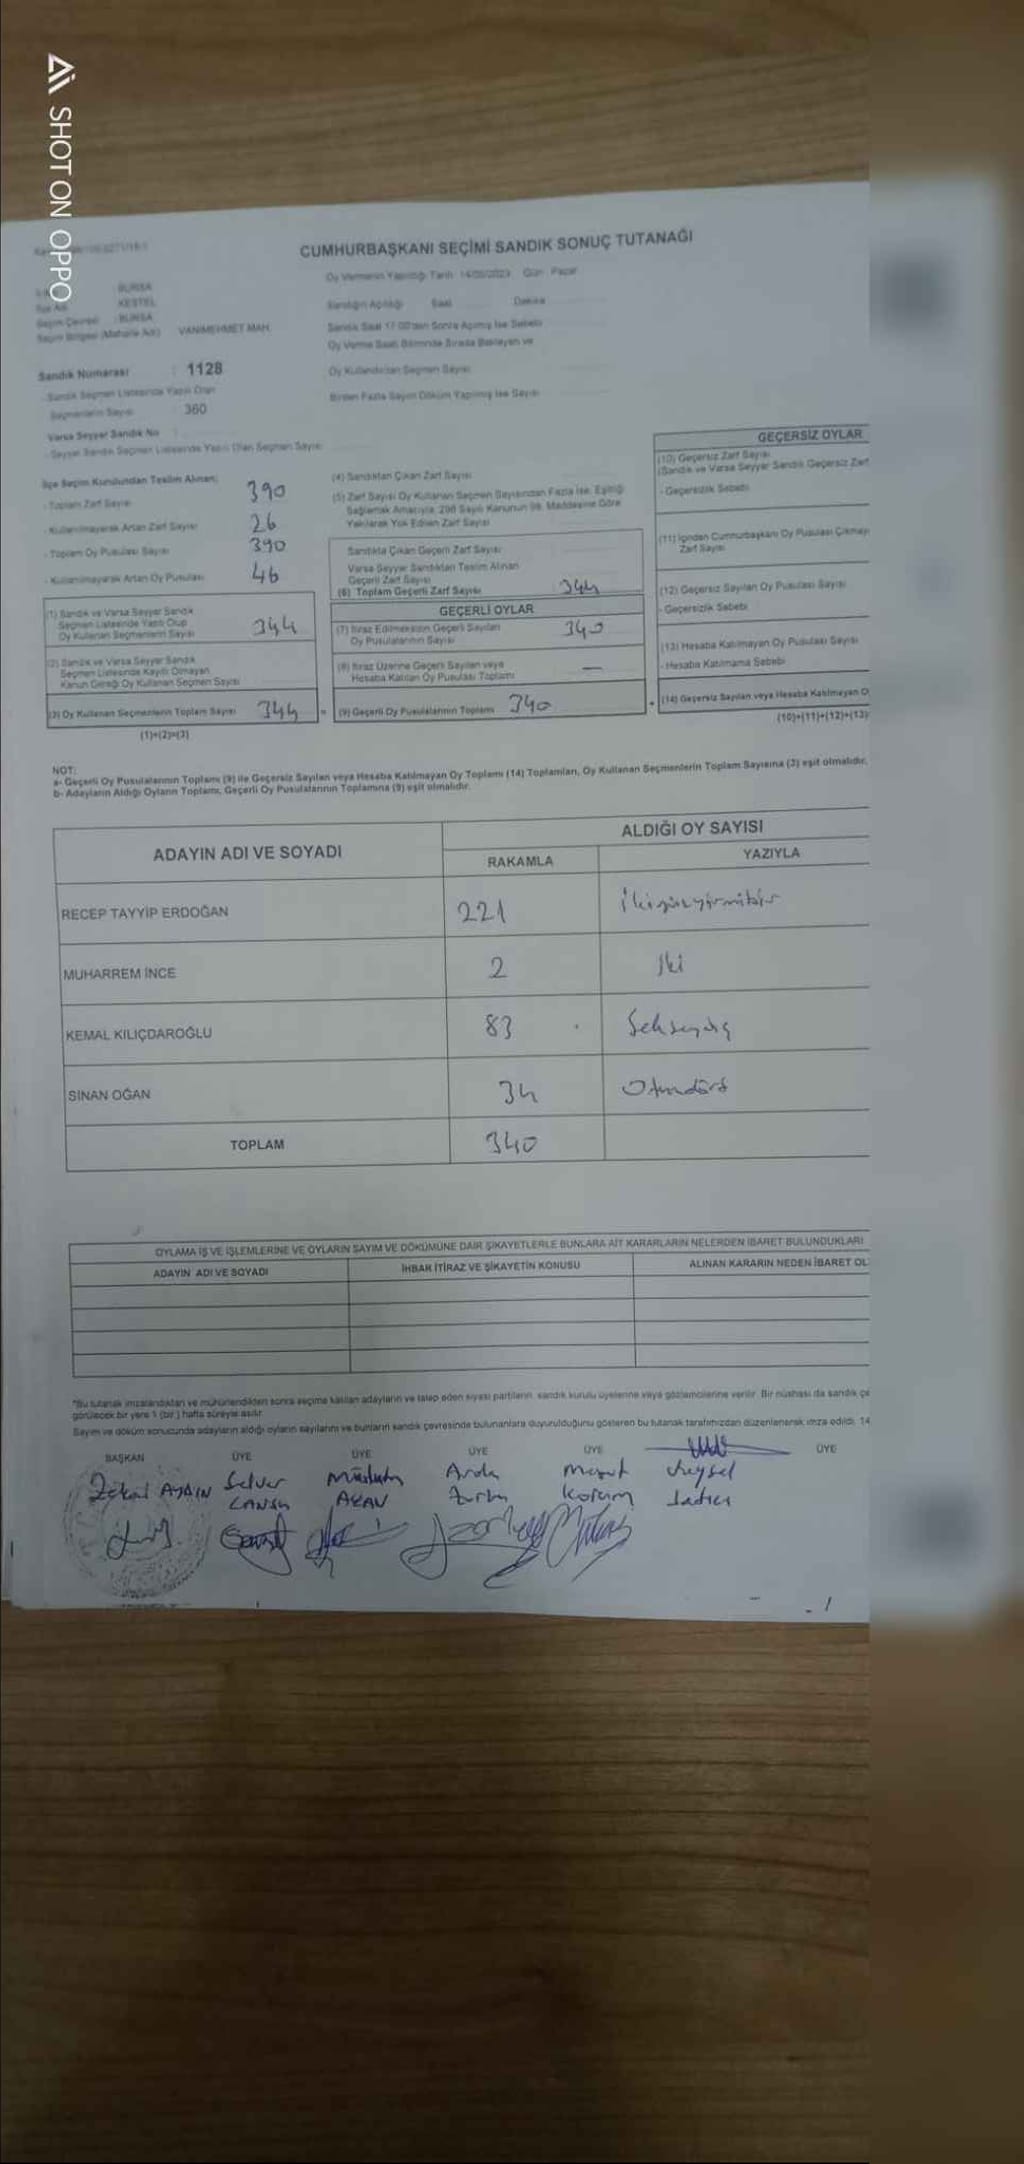 SHOT ON OPPO
CUMHURBAŞKANI SEÇİMİ SANDIK SONUÇ TUTANAĞI
Oy Vermenin Yapıldığı Tarih 14/05/2023 Gün Pazar
BURSA
KESTEL
BURSA
Seçim Bölgesi (Mahalle Adı) VANİMEHMET MAH.
Sandığın Açıldığı Saat Dakika
Sandık Saat 17:00'den Sonra Açılmış İse Sebebi
Oy Verme Saati Bitiminde Sırada Bekleyen ve
Oy Kullandırılan Seçmen Sayısı
Birden Fazla Sayım Döküm Yapılmış İse Sayısı
Sandık Numarası : 1128
- Sandık Seçmen Listesinde Yazılı Olan
Seçmenlerin Sayısı : 360
Varsa Seyyar Sandık No
- Seyyar Sandık Seçmen Listesinde Yazılı Olan Seçmen Sayısı
İlçe Seçim Kurulundan Teslim Alınan;
- Toplam Zarf Sayısı 390
- Kullanılmayarak Artan Zarf Sayısı 26
- Toplam Oy Pusulası Sayısı 390
- Kullanılmayarak Artan Oy Pusulası 46
(1) Sandık ve Varsa Seyyar Sandık
Seçmen Listesinde Yazılı Olup
Oy Kullanan Seçmenlerin Sayısı 344
(2) Sandık ve Varsa Seyyar Sandık
Seçmen Listesinde Kayıtlı Olmayan
Kanun Gereği Oy Kullanan Seçmen Sayısı
(3) Oy Kullanan Seçmenlerin Toplam Sayısı 344
(1)+(2)=(3)
(4) Sandıktan Çıkan Zarf Sayısı
(5) Zarf Sayısı Oy Kullanan Seçmen Sayısından Fazla İse, Eşitliği
Sağlamak Amacıyla, 298 Sayılı Kanunun 98. Maddesine Göre
Yakılarak Yok Edilen Zarf Sayısı
Sandıkta Çıkan Geçerli Zarf Sayısı
Varsa Seyyar Sandıktan Teslim Alınan
Geçerli Zarf Sayısı
(6) Toplam Geçerli Zarf Sayısı 344
GEÇERLİ OYLAR
(7) İtiraz Edilmeksizin Geçerli Sayılan
Oy Pusulalarının Sayısı 340
(8) İtiraz Üzerine Geçerli Sayılan veya
Hesaba Katılan Oy Pusulası Toplamı —
= (9) Geçerli Oy Pusulalarının Toplamı 340
GEÇERSİZ OYLAR
(10) Geçersiz Zarf Sayısı
(Sandık ve Varsa Seyyar Sandık Geçersiz Zarf
- Geçersizlik Sebebi
(11) İçinden Cumhurbaşkanı Oy Pusulası Çıkmay
Zarf Sayısı
(12) Geçersiz Sayılan Oy Pusulası Sayısı
- Geçersizlik Sebebi
(13) Hesaba Katılmayan Oy Pusulası Sayısı
- Hesaba Katılmama Sebebi
+ (14) Geçersiz Sayılan veya Hesaba Katılmayan O
(10)+(11)+(12)+(13)
NOT:
a- Geçerli Oy Pusulalarının Toplamı (9) ile Geçersiz Sayılan veya Hesaba Katılmayan Oy Toplamı (14) Toplamları, Oy Kullanan Seçmenlerin Toplam Sayısına (3) eşit olmalıdır.
b- Adayların Aldığı Oyların Toplamı, Geçerli Oy Pusulalarının Toplamına (9) eşit olmalıdır.
ADAYIN ADI VE SOYADI
ALDIĞI OY SAYISI
RAKAMLA YAZIYLA
RECEP TAYYİP ERDOĞAN 221 ikiyüzyirmibir
MUHARREM İNCE 2 iki
KEMAL KILIÇDAROĞLU 83 Seksenüç
SİNAN OĞAN 34 Otuzdört
TOPLAM 340
OYLAMA İŞ VE İŞLEMLERİNE VE OYLARIN SAYIM VE DÖKÜMÜNE DAİR ŞİKAYETLERLE BUNLARA AİT KARARLARIN NELERDEN İBARET BULUNDUKLARI
ADAYIN ADI VE SOYADI İHBAR İTİRAZ VE ŞİKAYETİN KONUSU ALINAN KARARIN NEDEN İBARET OL
*Bu tutanak imzalandıktan ve mühürlendikten sonra seçime katılan adayların ve talep eden siyasi partilerin sandık kurulu üyelerine veya gözlemcilerine verilir. Bir nüshası da sandık çe
görülecek bir yere 1 (bir) hafta süreyle asılır.
Sayım ve döküm sonucunda adayların aldığı oyların sayılarını ve bunların sandık çevresinde bulunanlara duyurulduğunu gösteren bu tutanak tarafımızdan düzenlenerek imza edildi. 14
BAŞKAN ÜYE ÜYE ÜYE ÜYE ÜYE
Zekai AYDIN Selver Arda Mesut Veysel
CANSU